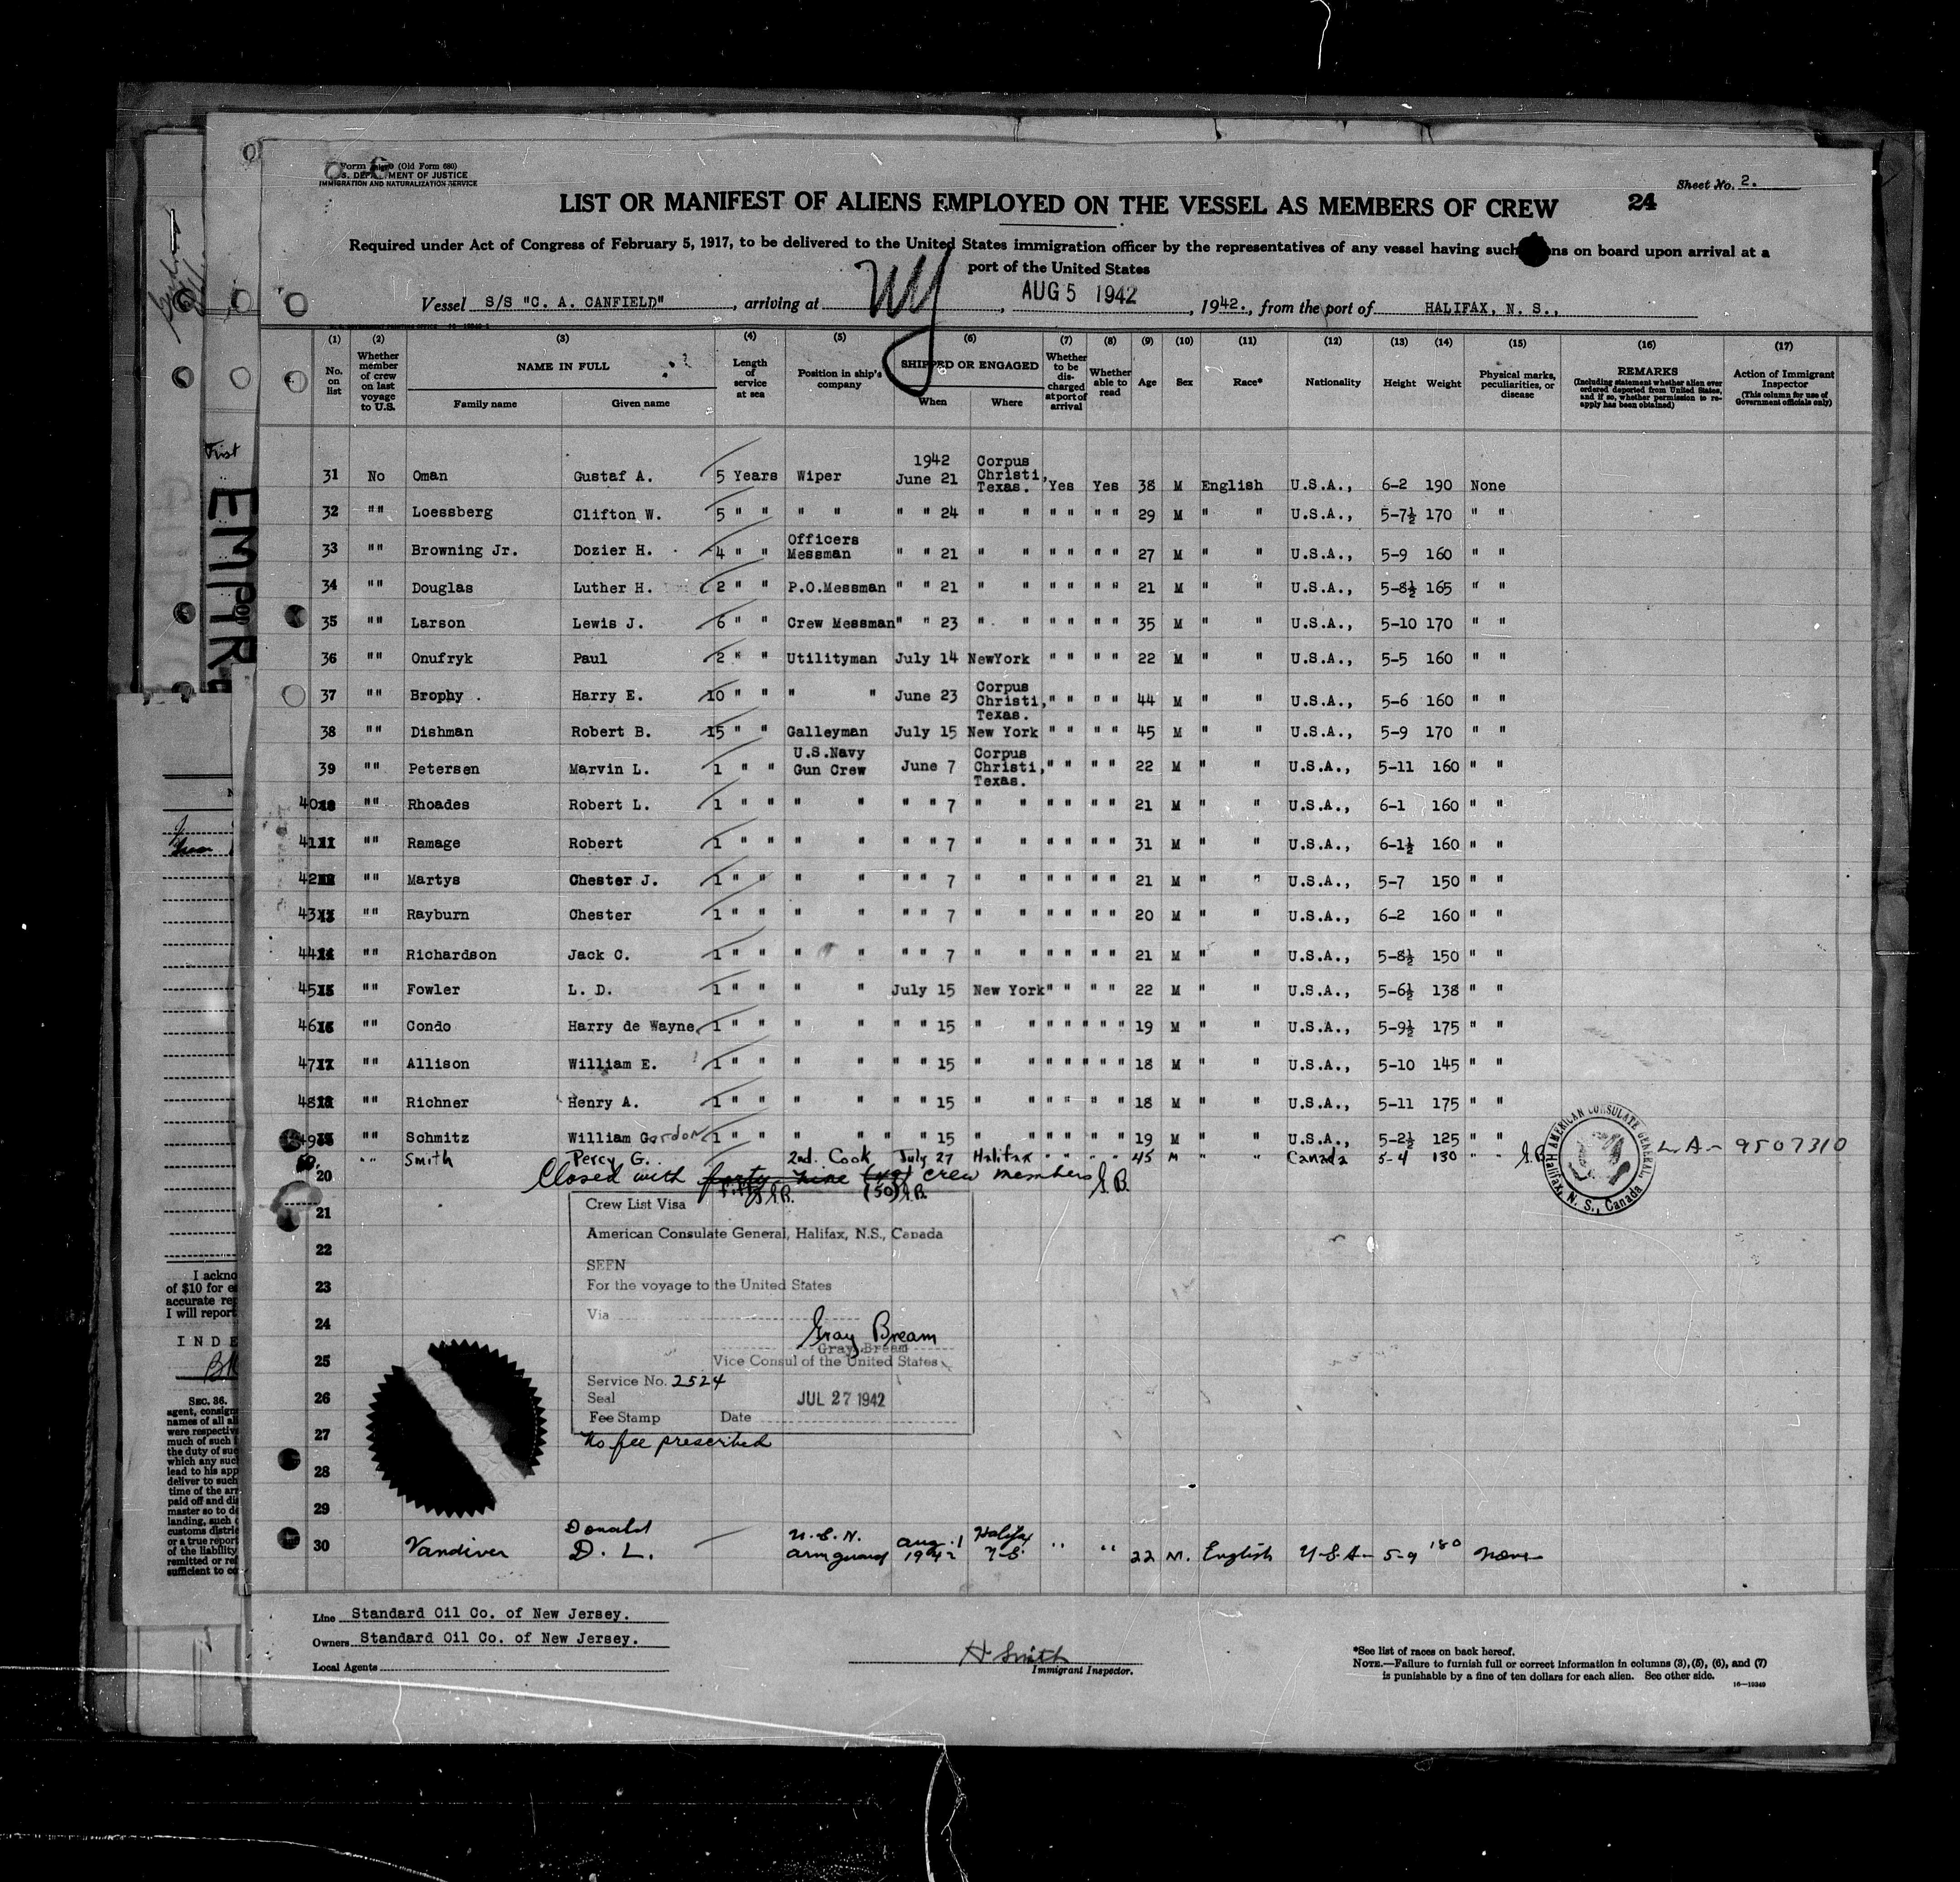 (Old Form 680)
DEPARTMENT OF JUSTICE
IMMIGRATION AND NATURALIZATION SERVICE
Sheet No. 2.
LIST OR MANIFEST OF ALIENS EMPLOYED ON THE VESSEL AS MEMBERS OF CREW
24
Required under Act of Congress of February 5, 1917, to be delivered to the United States immigration officer by the representatives of any vessel having such on board upon arrival at a
port of the United States
Vessel S/S "C. A. CANFIELD", arriving at NY, AUG 5 1942, 1942., from the port of HALIFAX, N. S.,
(1) (2) (3) (4) (5) (6) (7) (8) (9) (10) (11) (12) (13) (14) (15) (16) (17)
No. on list
Whether member of crew on last voyage to U.S.
NAME IN FULL
Family name
Given name
Length of service at sea
Position in ship's company
SHIPPED OR ENGAGED
When
Where
Whether to be discharged at port of arrival
Whether able to read
Age
Sex
Race*
Nationality
Height
Weight
Physical marks, peculiarities, or disease
REMARKS
(Including statement whether alien ever ordered deported from United States, and if so, whether permission to reapply has been obtained)
Action of Immigrant Inspector
(This column for use of Government officials only)
31 No Oman Gustaf A. 5 Years Wiper 1942 June 21 Corpus Christi, Texas. Yes Yes 38 M English U.S.A., 6-2 190 None
32 "" Loessberg Clifton W. 5 " " " " " " 24 " " " " " " 29 M " " U.S.A., 5-7½ 170 " "
33 "" Browning Jr. Dozier H. 4 " " Officers Messman " " 21 " " " " " " 27 M " " U.S.A., 5-9 160 " "
34 "" Douglas Luther H. 2 " " P.O.Messman " " 21 " " " " " " 21 M " " U.S.A., 5-8½ 165 " "
35 "" Larson Lewis J. 6 " " Crew Messman " " 23 " " " " " " 35 M " " U.S.A., 5-10 170 " "
36 "" Onufryk Paul 2 " " Utilityman July 14 NewYork " " " " 22 M " " U.S.A., 5-5 160 " "
37 "" Brophy . Harry E. 10 " " " " June 23 Corpus Christi, Texas. " " " " 44 M " " U.S.A., 5-6 160 " "
38 "" Dishman Robert B. 15 " " Galleyman July 15 New York " " " " 45 M " " U.S.A., 5-9 170 " "
39 "" Petersen Marvin L. 1 " " U.S.Navy Gun Crew June 7 Corpus Christi, Texas. " " " " 22 M " " U.S.A., 5-11 160 " "
40 "" Rhoades Robert L. 1 " " " " " " 7 " " " " " " 21 M " " U.S.A., 6-1 160 " "
41 "" Ramage Robert 1 " " " " " " 7 " " " " " " 31 M " " U.S.A., 6-1½ 160 " "
42 "" Martys Chester J. 1 " " " " " " 7 " " " " " " 21 M " " U.S.A., 5-7 150 " "
43 "" Rayburn Chester 1 " " " " " " 7 " " " " " " 20 M " " U.S.A., 6-2 160 " "
44 "" Richardson Jack C. 1 " " " " " " 7 " " " " " " 21 M " " U.S.A., 5-8½ 150 " "
45 "" Fowler L. D. 1 " " " " July 15 New York " " " " 22 M " " U.S.A., 5-6½ 138 " "
46 "" Condo Harry de Wayne 1 " " " " " " 15 " " " " " " " 19 M " " U.S.A., 5-9½ 175 " "
47 "" Allison William E. 1 " " " " " " 15 " " " " " " " 18 M " " U.S.A., 5-10 145 " "
48 "" Richner Henry A. 1 " " " " " " 15 " " " " " " 18 M " " U.S.A., 5-11 175 " "
49 "" Schmitz William Gordon 1 " " " " " " 15 " " " " " " 19 M " " U.S.A., 5-2½ 125 " "
50. " " Smith Percy G. 2nd. Cook July 27 Halifax " " " " 45 M " " Canada 5-4 130 " " G.B. L.A- 9507310
AMERICAN CONSULATE GENERAL Halifax, N. S., Canada
20 Closed with forty nine (49) crew members G.B.
fifty G.B. (50) G.B.
21
22
23
24
25
26
27
28
29
Crew List Visa
American Consulate General, Halifax, N.S., Canada
SEEN
For the voyage to the United States
Via
Gray Bream
Gray Bream
Vice Consul of the United States
Service No. 2524
Seal JUL 27 1942
Fee Stamp Date
No fee prescribed
30 Vandiver Donald D. L. U.S.N. arm guard Aug. 1 1942 Halifax N.S. " " 22 M. English U.S.A- 5-9 180 None
Line Standard Oil Co. of New Jersey.
Owners Standard Oil Co. of New Jersey.
Local Agents
H Smith
Immigrant Inspector.
*See list of races on back hereof.
NOTE.—Failure to furnish full or correct information in columns (3), (5), (6), and (7)
is punishable by a fine of ten dollars for each alien. See other side.
16—19349
First
I ackno
of $10 for
accurate
I will report
INDE
SEC. 36.
agent, consign
names of all
were respectiv
much of such
the duty of
which any
lead to his app
deliver to such
time of the
paid off and
master so to
landing, such
customs distri
or a true report
of the liability
remitted or
sufficient to